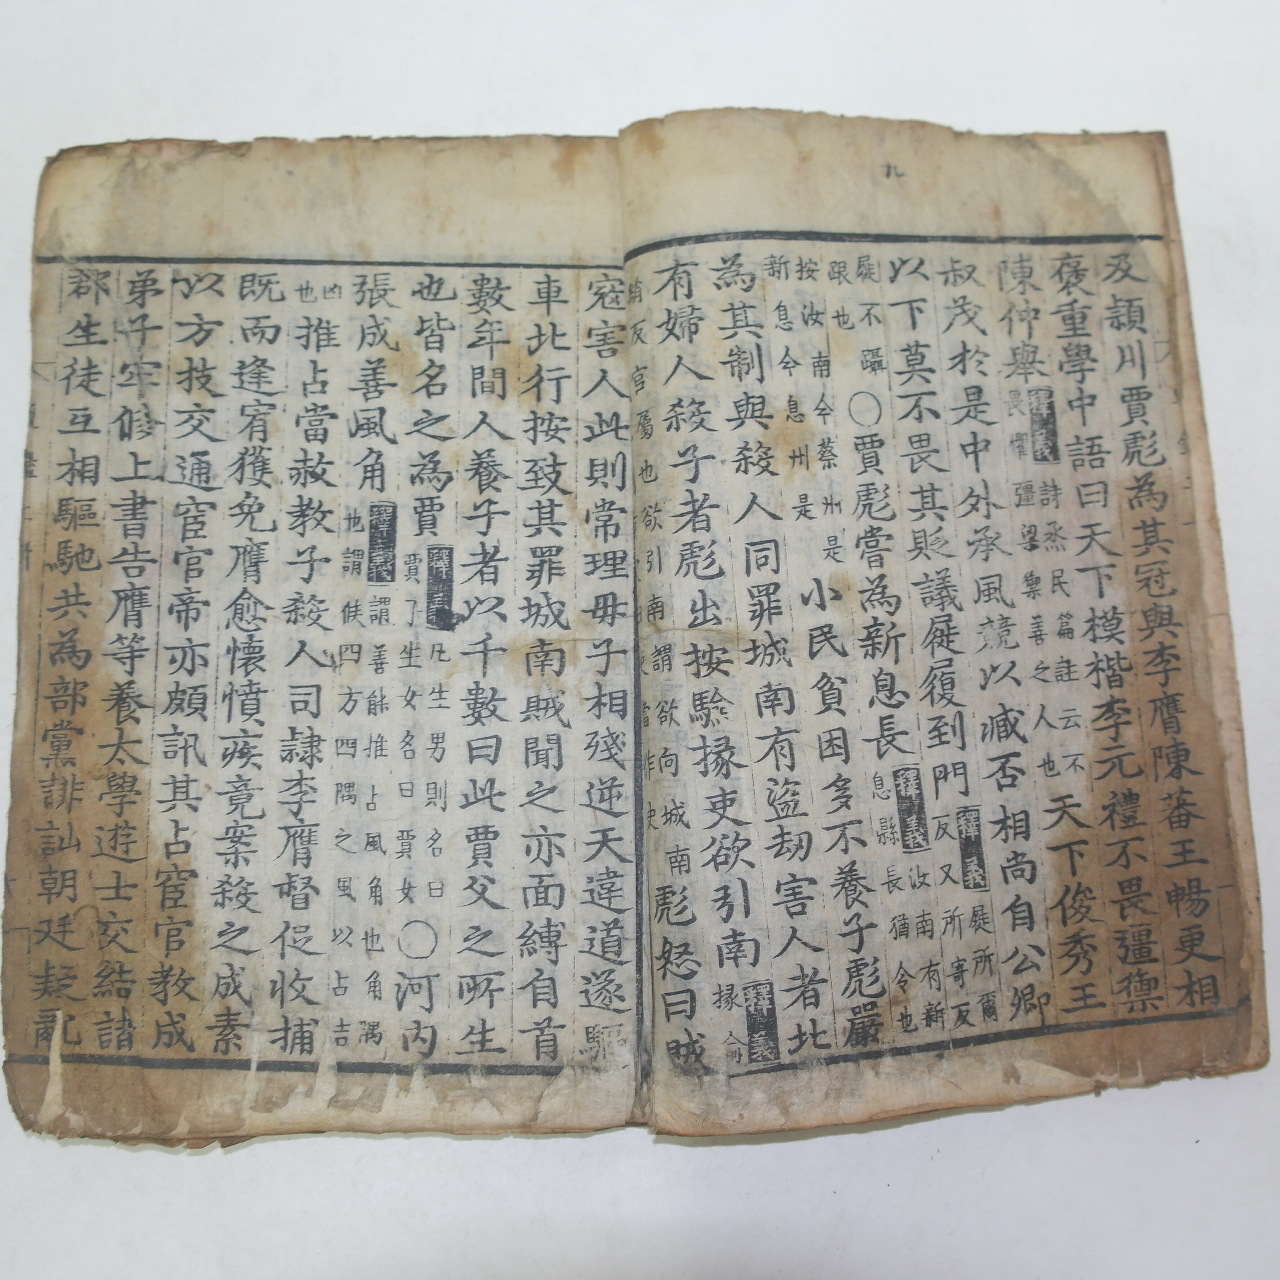 九
及頴川賈彪為其冠與李膺陳蕃王暢更相
褒重學中語曰天下模楷李元禮不畏彊禦
陳仲舉釋義詩烝民篇註云不畏懼彊梁禦善之人也天下俊秀王
叔茂於是中外承風競以臧否相尚自公卿
以下莫不畏其貶議屣履到門釋義屣所爾反又所寄反
屣不躡跟也○賈彪嘗為新息長釋義汝南有新息縣長猶令也
按汝南今蔡州是新息今息州是小民貧困多不養子彪嚴
為其制與殺人同罪城南有盜劫害人者北
有婦人殺子者彪出按驗掾吏欲引南釋義掾俞
絹反官屬也欲引南謂欲向城南彪怒曰賊
寇害人此則常理毋子相殘逆天違道遂驅
車北行按致其罪城南賊聞之亦面縛自首
數年間人養子者以千數曰此賈父之所生
也皆名之為賈釋義凡生男則名曰賈了生女名曰賈女○河內
張成善風角釋義謂善能推占風角也角隅也謂候四方四隅之風以占吉
凶也推占當赦教子殺人司隸李膺督促收捕
既而逢宥獲免膺愈懷憤疾竟案殺之成素
以方技交通宦官帝亦頗訊其占宦官教成
弟子牢修上書告膺等養太學遊士交結諸
郡生徒互相驅馳共為部黨誹訕朝廷疑亂